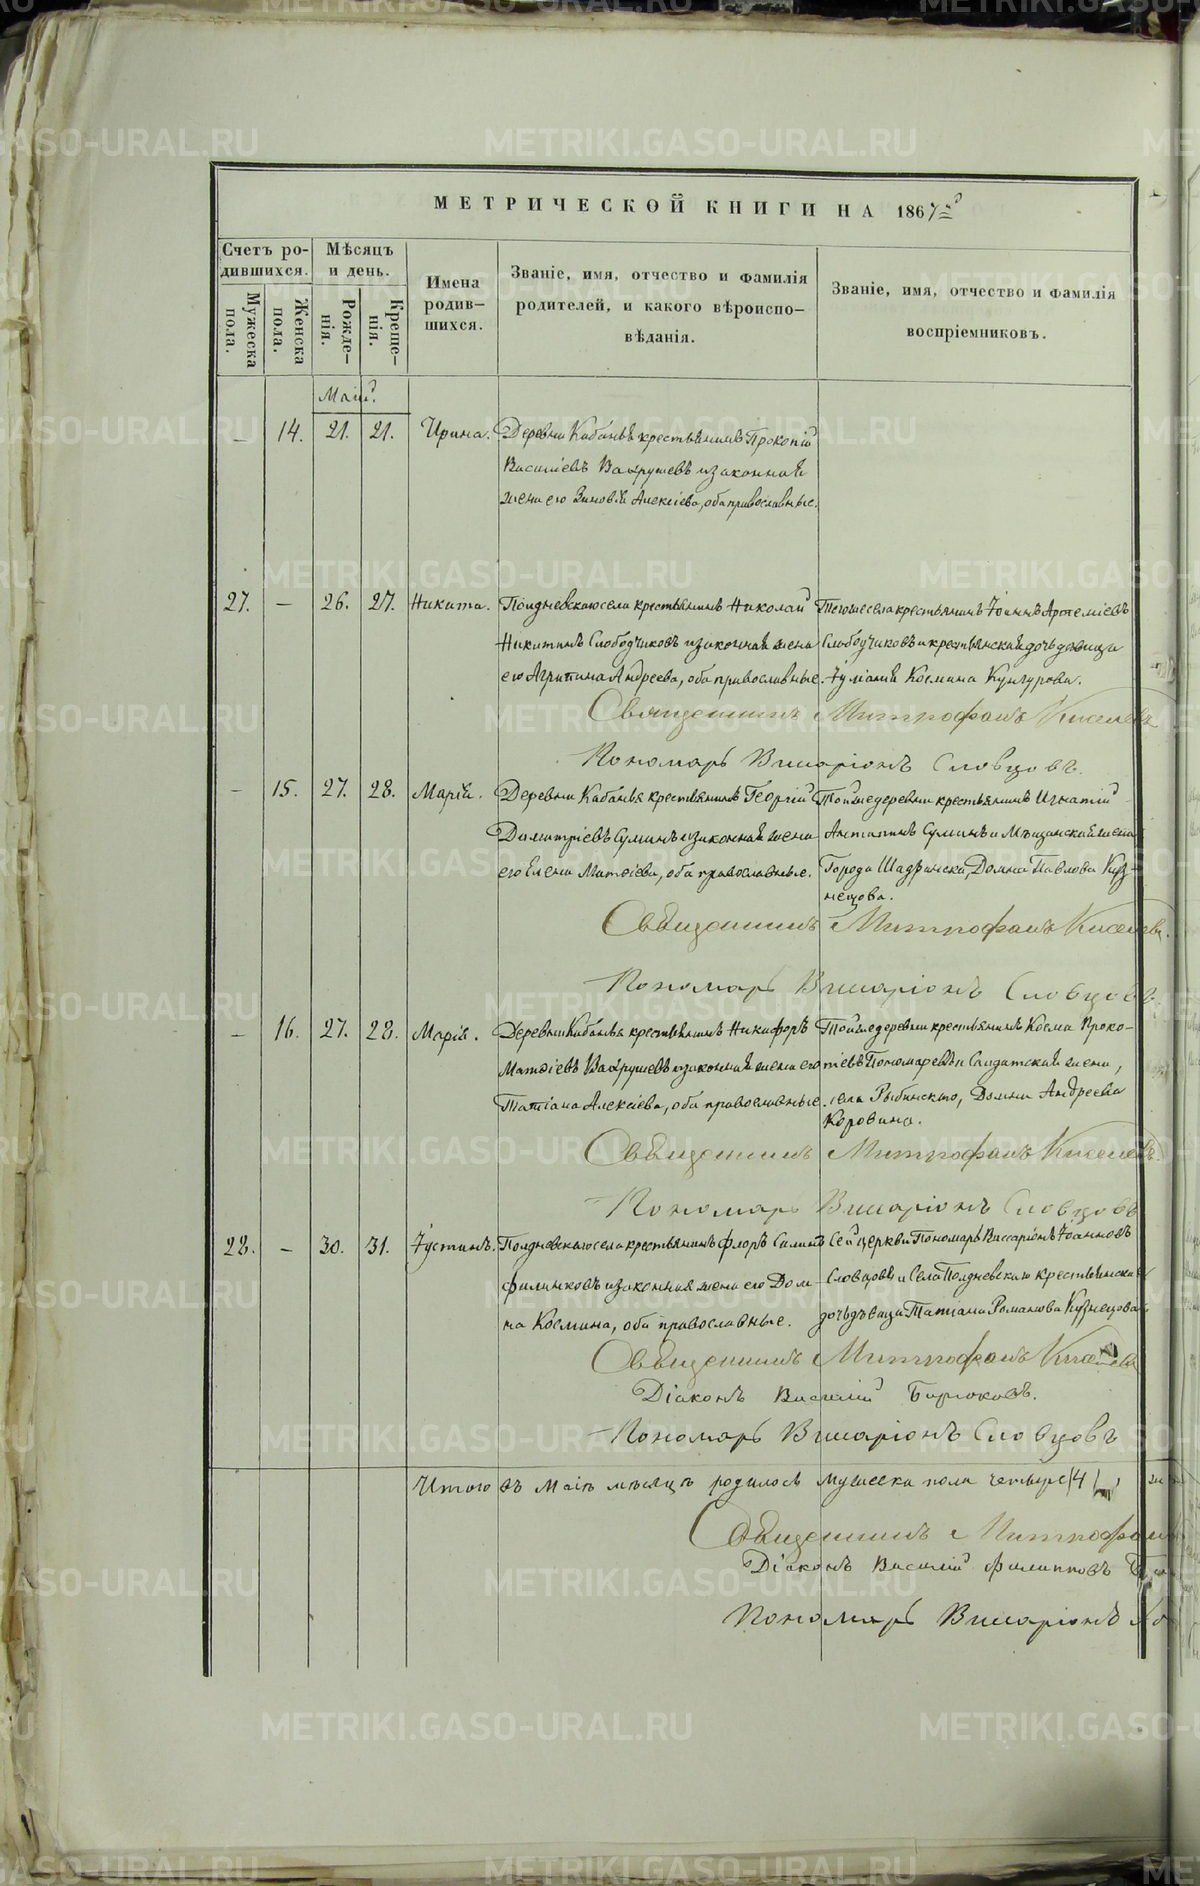 METRIKI.GASO-URAL.RU
МЕТРИЧЕСКОЙ КНИГИ НА 1867й
Счетъ ро-
дившихся.
Мѣсяцъ
и день.
Мужеска
пола.
Женска
пола.
Рожде-
нія.
Креще-
нія.
Имена
родив-
шихся.
Званіе, имя, отчество и фамилія
родителей, и какого вѣроиспо-
вѣданія.
Званіе, имя, отчество и фамилія
воспріемниковъ.
Май.
— 14. 21. 21. Ирина. Деревни Кабанья крестьянинъ Прокопій
Василіевъ Вахрушевъ и законная
жена его Зиновія Алексіева, оба православные.
27. — 26. 27. Никита. Полдневскаго села крестьянинъ Николай
Никитинъ Слободчиковъ и законная жена
его Агрипина Андреева, оба православные.
Тогоже села крестьянинъ Іоаннъ Артеміевъ
Слободчиковъ и крестьянская дочь девица
Іуліанія Космина Кунгурова.
Священникъ Митрофанъ Киселевъ
Пономарь Висаріонъ Словцовъ.
— 15. 27. 28. Марія. Деревни Кабанья крестьянинъ Георгій
Димитріевъ Суминъ и законная жена
его Елена Матѳіева, оба православные.
Тойже деревни крестьянинъ Игнатій
Антипинъ Суминъ и Мѣщанская жена
Города Шадринска, Домна Павлова Куз-
нецова.
Священникъ Митрофанъ Киселевъ.
Пономарь Висаріонъ Словцовъ.
— 16. 27. 28. Марія. Деревни Кабанья крестьянинъ Никифоръ
Матѳіевъ Вахрушевъ и законная жена его
Татіана Алексіева, оба православные.
Тойже деревни крестьянинъ Косма Проко-
піевъ Пономаревъ и Солдатская жена,
села Рыбинскаго, Домна Андреева
Коровина.
Священникъ Митрофанъ Киселевъ.
Пономарь Висаріонъ Словцовъ
28. — 30. 31. Іустинъ. Полдневскаго села крестьянинъ Флоръ
Филинковъ и законная жена его Дом-
на Космина, оба православные.
Сей церкви Пономарь Виссаріонъ Іоанновъ
Словцовъ и Села Полдневскаго крестьянская
дочь дѣвица Татіана Романова Кузнецова
Священникъ Митрофанъ Киселевъ
Діаконъ Василій Бирюковъ.
Пономарь Висаріонъ Словцовъ
Итого въ Маіѣ мѣсяцѣ родилось мужеска пола четыре (4),
Священникъ Митрофанъ
Діаконъ Василій Филипповъ
Пономарь Висаріонъ